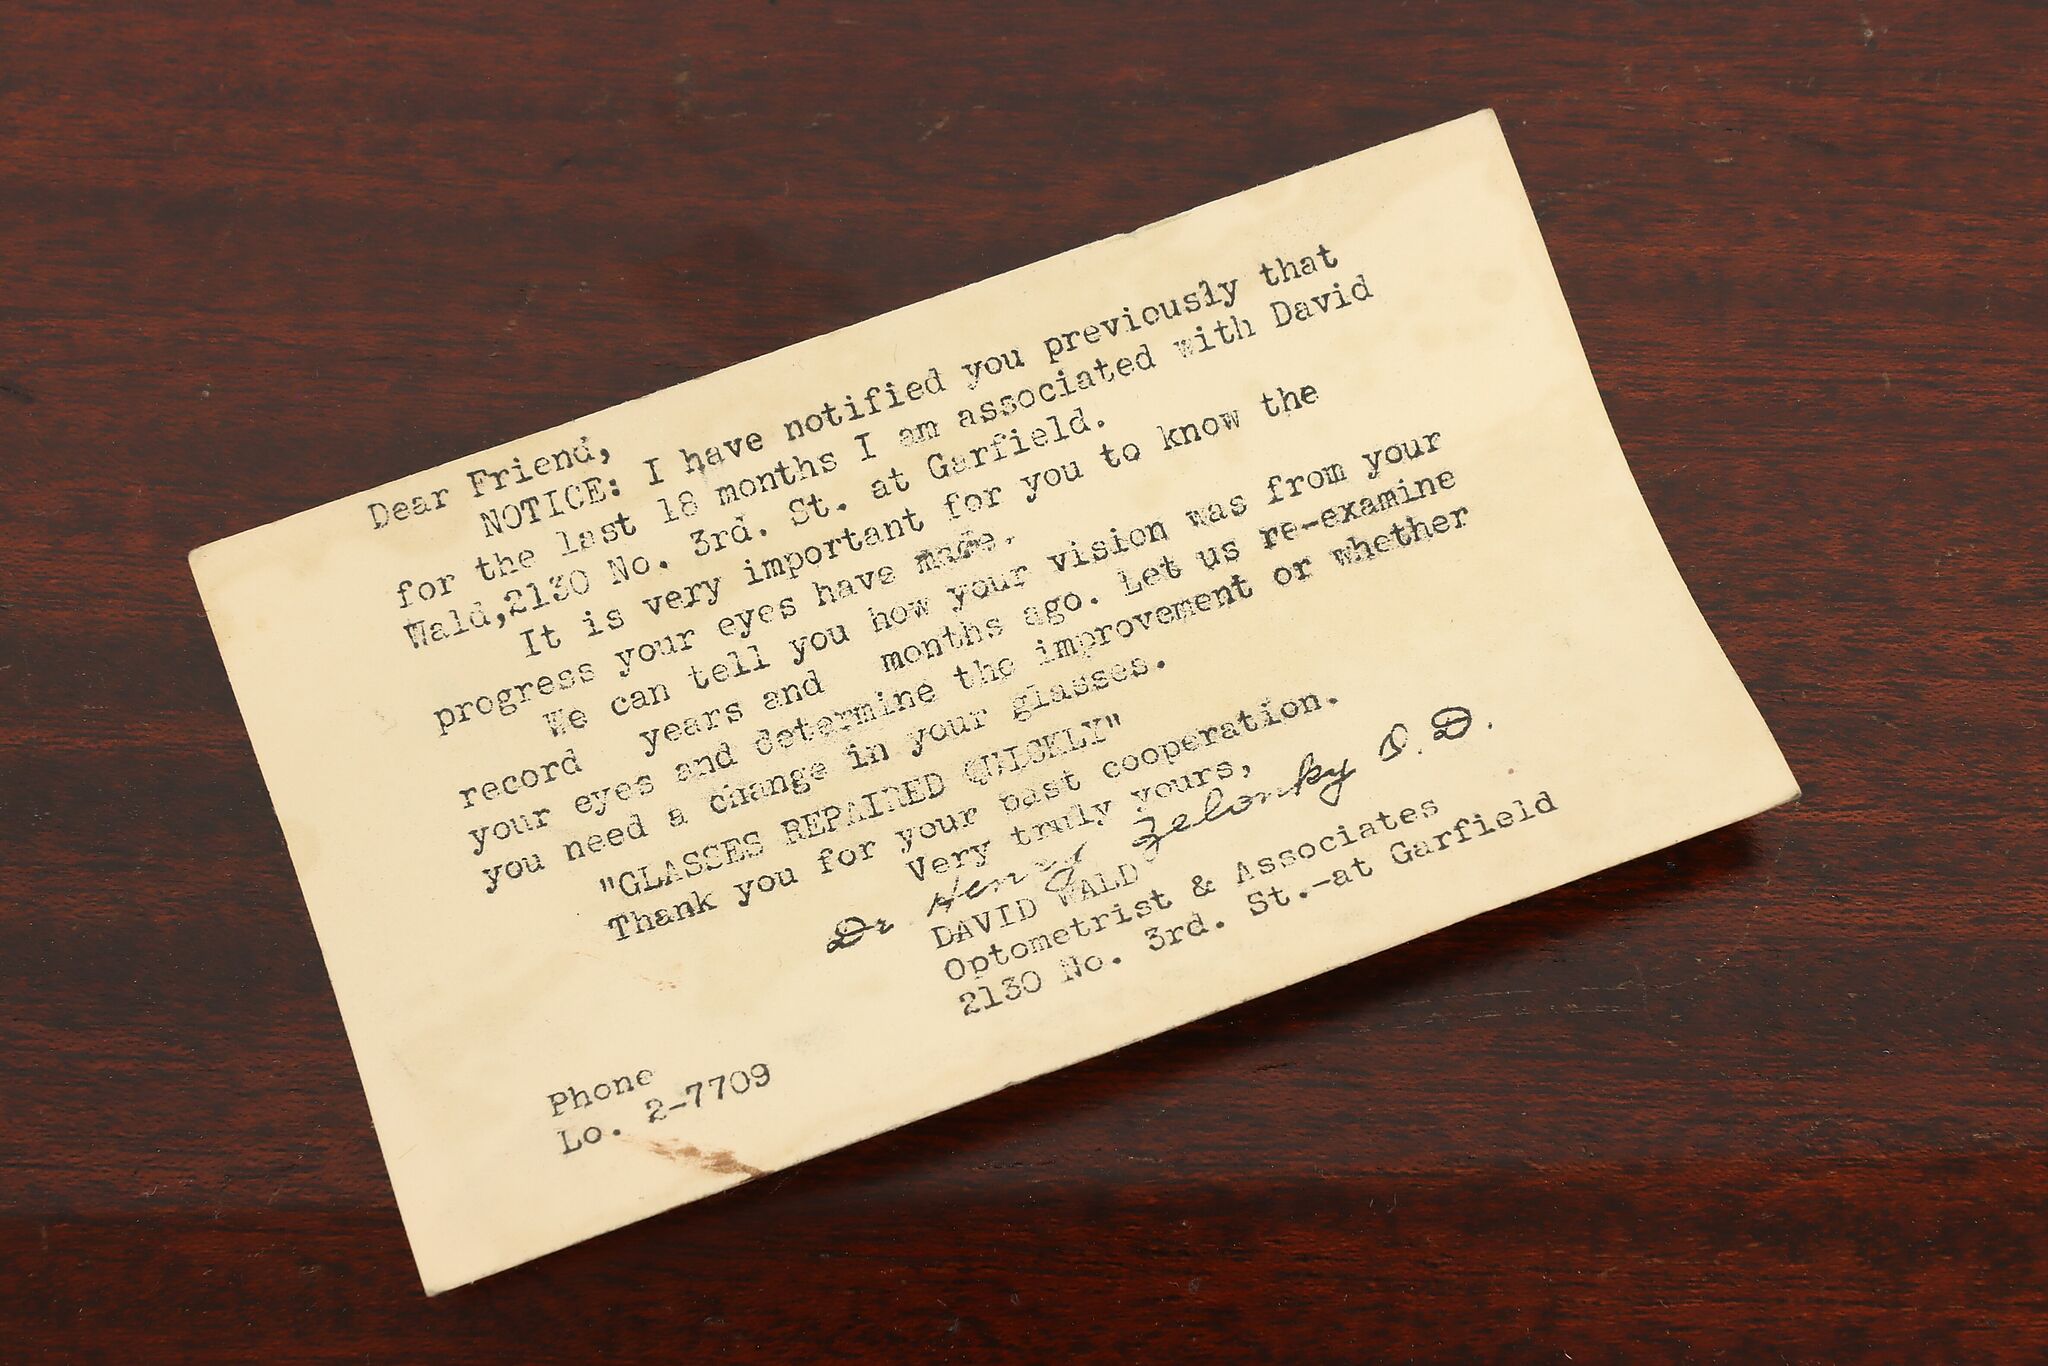 Dear Friend,
NOTICE: I have notified you previously that
for the last 18 months I am associated with David
Wald,2130 No. 3rd. St. at Garfield.
It is very important for you to know the
progress your eyes have made.
We can tell you how your vision was from your
record years and months ago. Let us re-examine
your eyes and determine the improvement or whether
you need a change in your glasses.
"GLASSES REPAIRED QUICKLY"
Thank you for your past cooperation.
Very truly yours,
Dr Henry Zelonky O.D.
DAVID WALD
Optometrist & Associates
2130 No. 3rd. St.-at Garfield
Phone
Lo. 2-7709